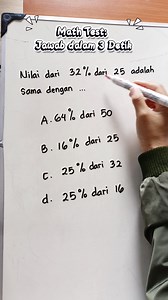 Math Test:
Jawab dalam 3 Detik
Nilai dari 32% dari 25 adalah
sama dengan ...
A. 64% dari 50
B. 16% dari 25
C. 25% dari 32
d. 25% dari 16